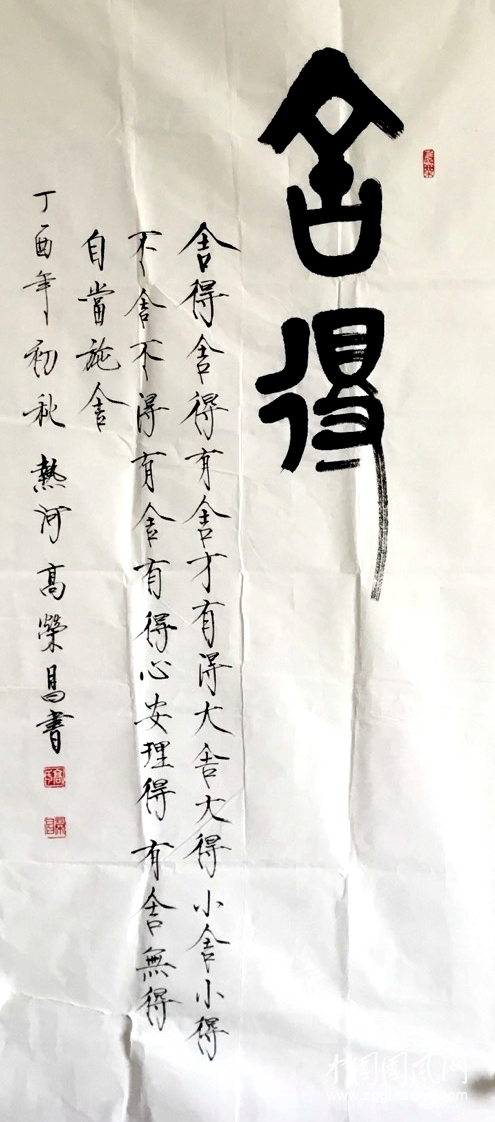 舍得
舍得舍得有舍才有得大舍大得小舍小得
不舍不得有舍有得心安理得有舍無得
自當施舍
丁酉年初秋 熱河高榮昌書
中国国风网